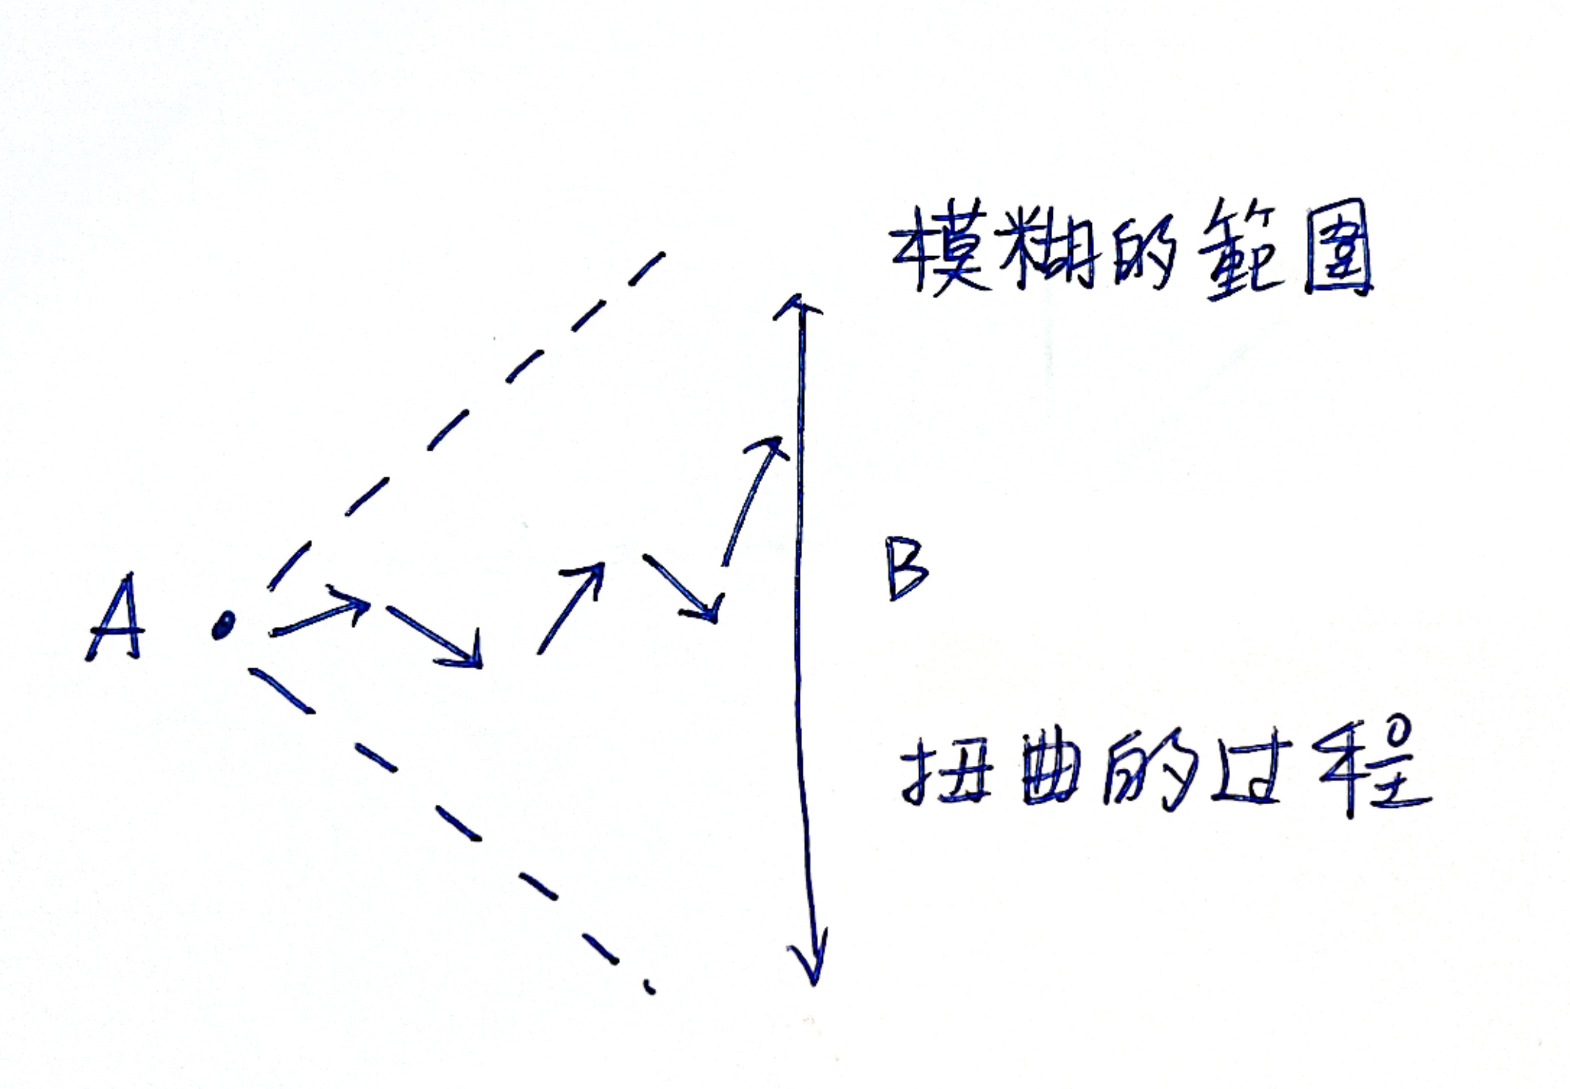 模糊的範圍
A
B
扭曲的过程